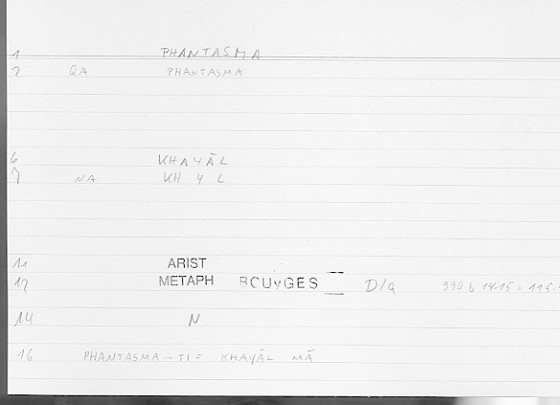 1 PHANTASMA
2 QA PHANTASMA
6 KHAYĀL
7 NA KH Y L
11 ARIST
12 METAPH BOUyGES D/a
14 N
16 PHANTASMA-TI = KHAYĀL MĀ